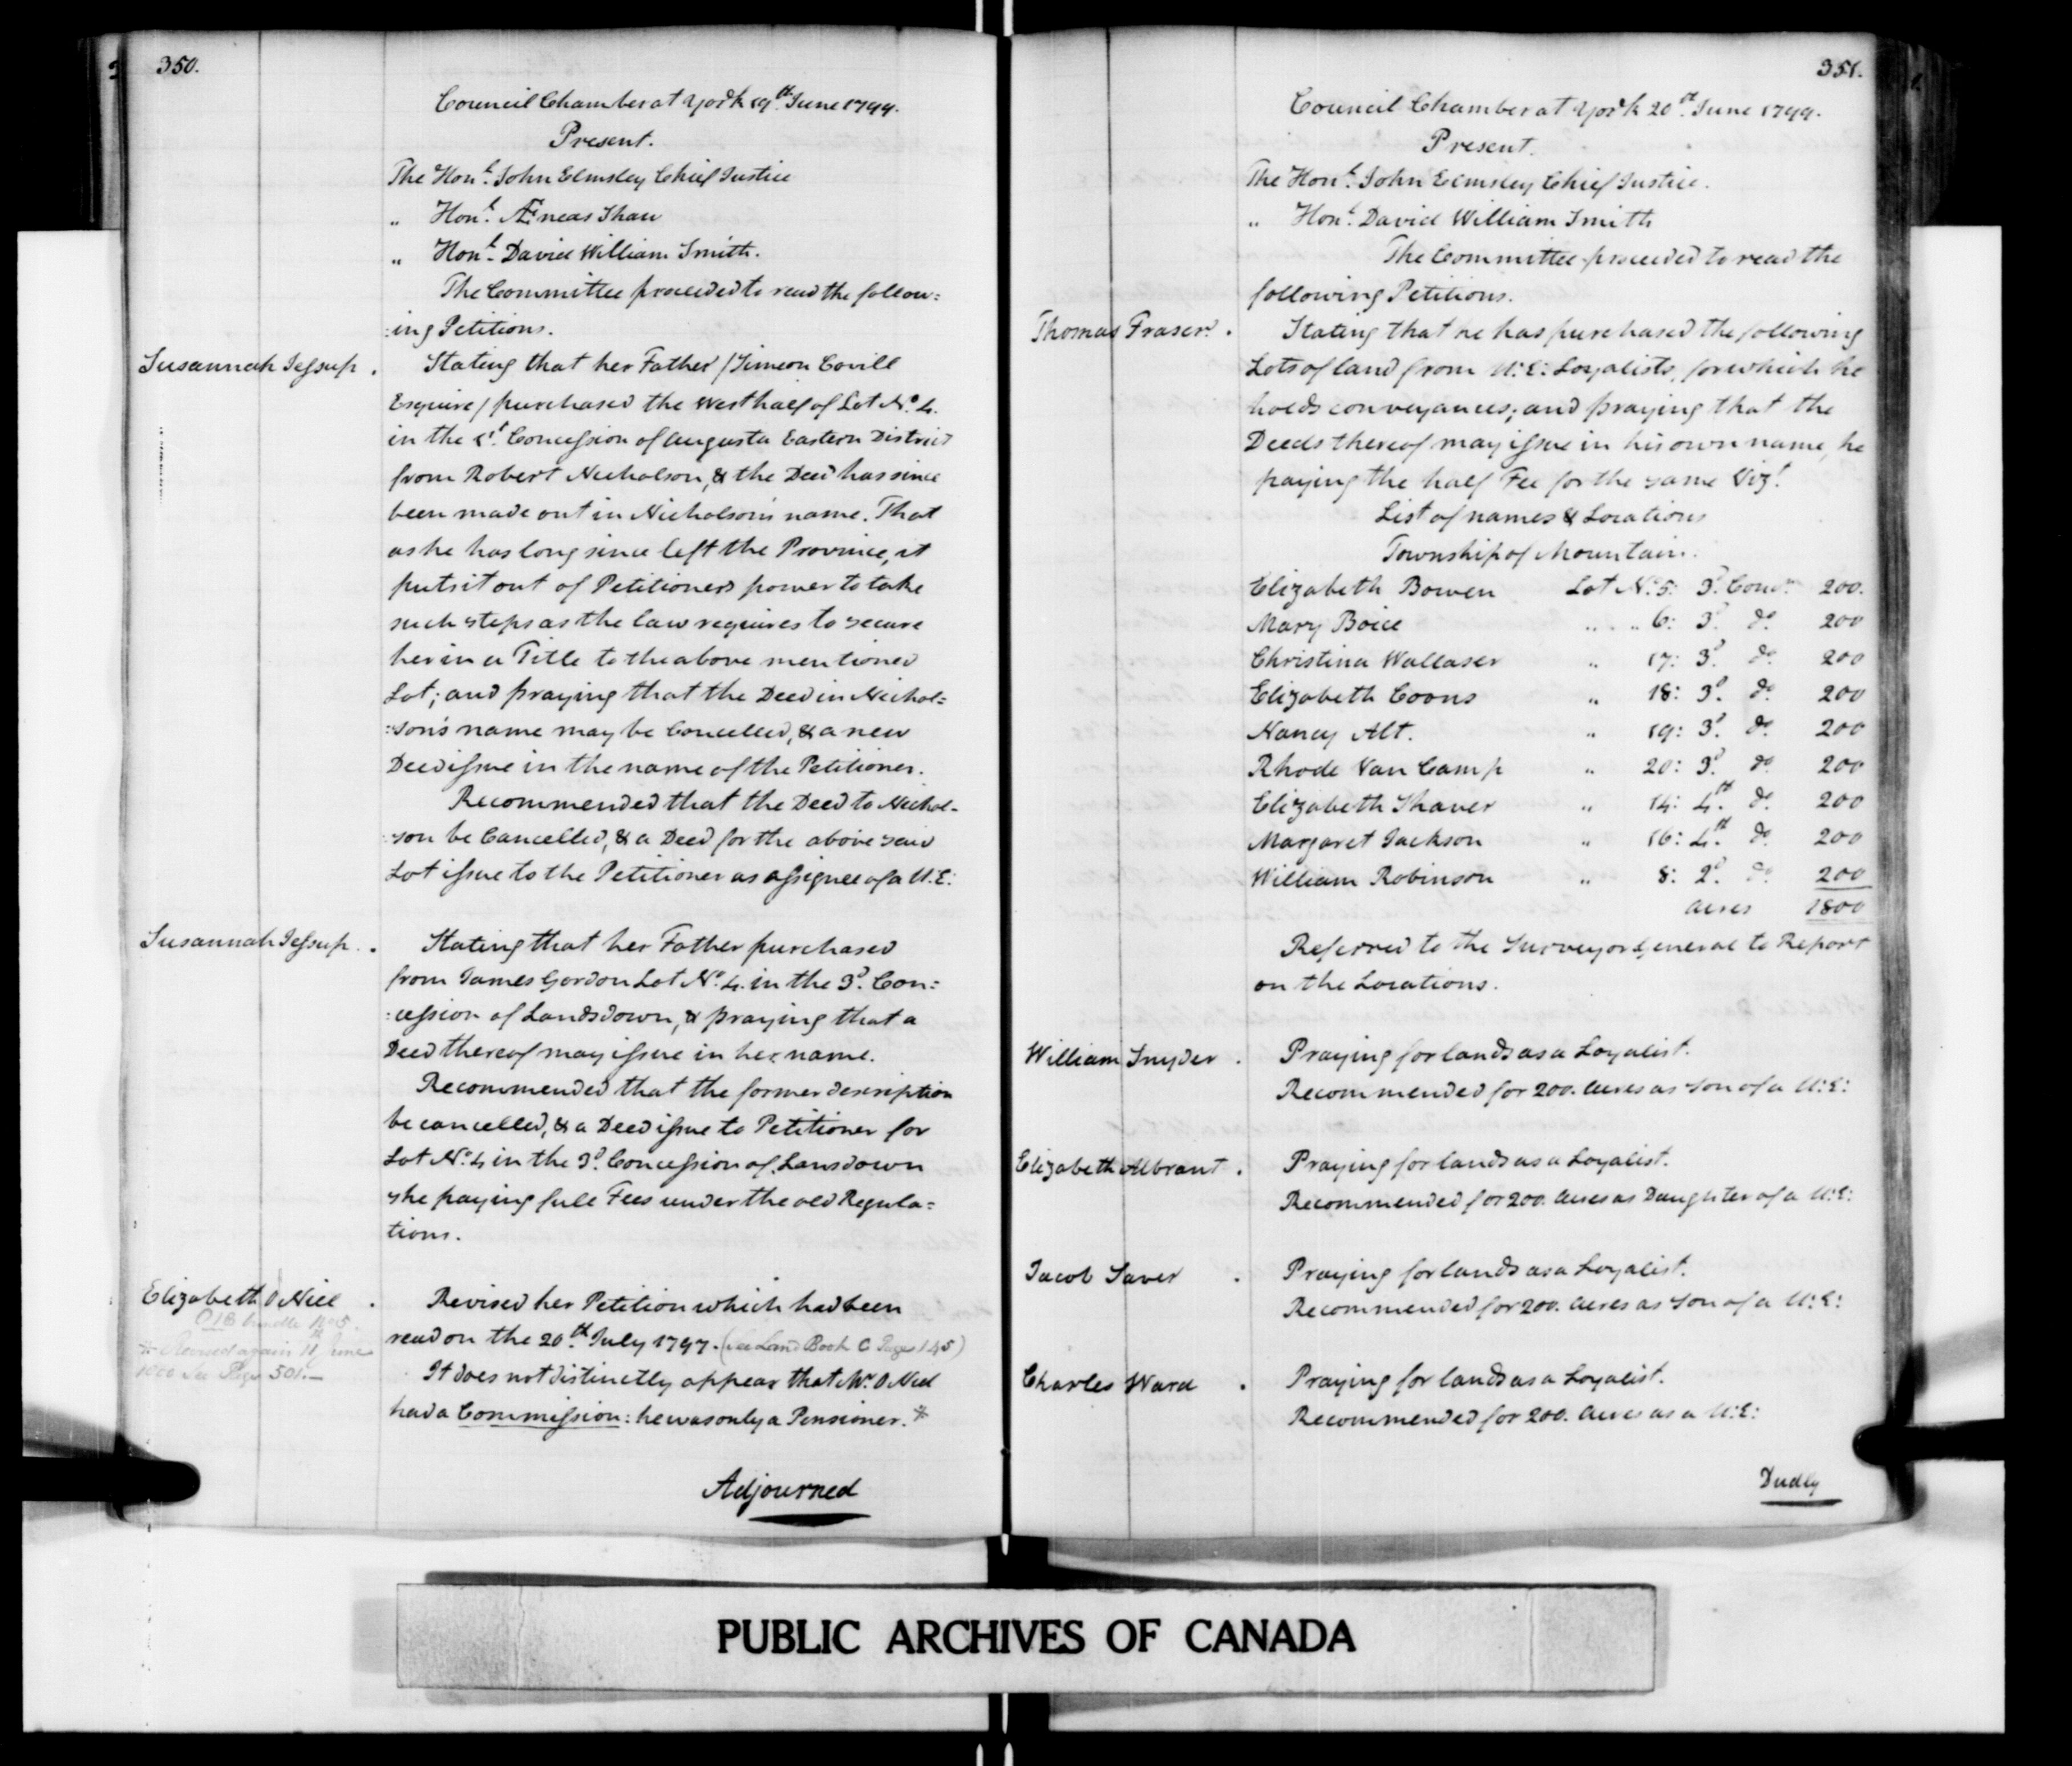 350.
Council Chamber at York 19th June 1799.
Present.
The Honl. John Elmsley Chief Justice
„ Honl. Æneas Shaw
„ Honl. David William Smith.
The Committee proceeded to read the follow=
:ing Petitions.
Susannah Jessup. Stating that her Father /Simeon Covill
Esquire/ purchased the West half of Lot No. 4.
in the 1st. Concession of Augusta Eastern District
from Robert Nicholson, & the Deed has since
been made out in Nicholson's name. That
as he has long since left the Province, it
puts it out of Petitioners power to take
such steps as the law requires to secure
her in a Title to the above mentioned
Lot; and praying that the Deed in Nichol=
:son's name may be Cancelled, & a new
Deed issue in the name of the Petitioner.
Recommended that the Deed to Nichol=
:son be Cancelled, & a Deed for the above said
Lot issue to the Petitioner as assignee of a U.E:
Susannah Jessup. Stating that her Father purchased
from James Gordon Lot No. 4. in the 3d. Con:
:cession of Landsdown, & praying that a
Deed thereof may issue in her name.
Recommended that the former description
be cancelled, & a Deed issue to Petitioner for
Lot No. 4 in the 3d. Concession of Lansdown
she paying full Fees under the old Regula=
tions.
Elizabeth O Niel. Revised her Petition which had been
read on the 20th July 1797. (see Land Book C Page 145)
It does not distinctly appear that Mr. O Niel
had a Commission: he was only a Pensioner. *
bundle No 5.
* Revised again 11th June
See Page 501.—
Adjourned
351.
Council Chamber at York 20th. June 1799.
Present.
The Honl. John Elmsley Chief Justice.
„ Honl. David William Smith
The Committee proceeded to read the
following Petitions.
Thomas Fraser. Stating that he has purchased the following
Lots of land from U:E: Loyalists, for which he
holds conveyances; and praying that the
Deeds thereof may issue in his own name, he
paying the half Fee for the same Vizt.
List of names & Locations
Township of Mountain.
Elizabeth Bowen Lot No. 5: 3d. Conn. 200.
Mary Boice „ „ 6: 3d. do. 200
Christina Wallaser „ 17: 3d. do. 200
Elizabeth Coons „ 18: 3d. do. 200
Nancy Alt. „ 19: 3d. do. 200
Rhode Van Camp „ 20: 3d. do. 200
Elizabeth Shaver „ 14: 4th. do. 200
Margaret Jackson „ 16: 4th. do. 200
William Robinson „ 8: 2d. do. 200
acres 1800
Referred to the Surveyor General to Report
on the Locations.
William Snyder. Praying for lands as a Loyalist.
Recommended for 200. Acres as Son of a U:E:
Elizabeth Albrant. Praying for lands as a Loyalist.
Recommended for 200. Acres as Daughter of a U:E:
Jacob Saver. Praying for lands as a Loyalist.
Recommended for 200. Acres as Son of a U:E:
Charles Ward. Praying for lands as a Loyalist.
Recommended for 200. Acres as a U:E:
Dudly
PUBLIC ARCHIVES OF CANADA